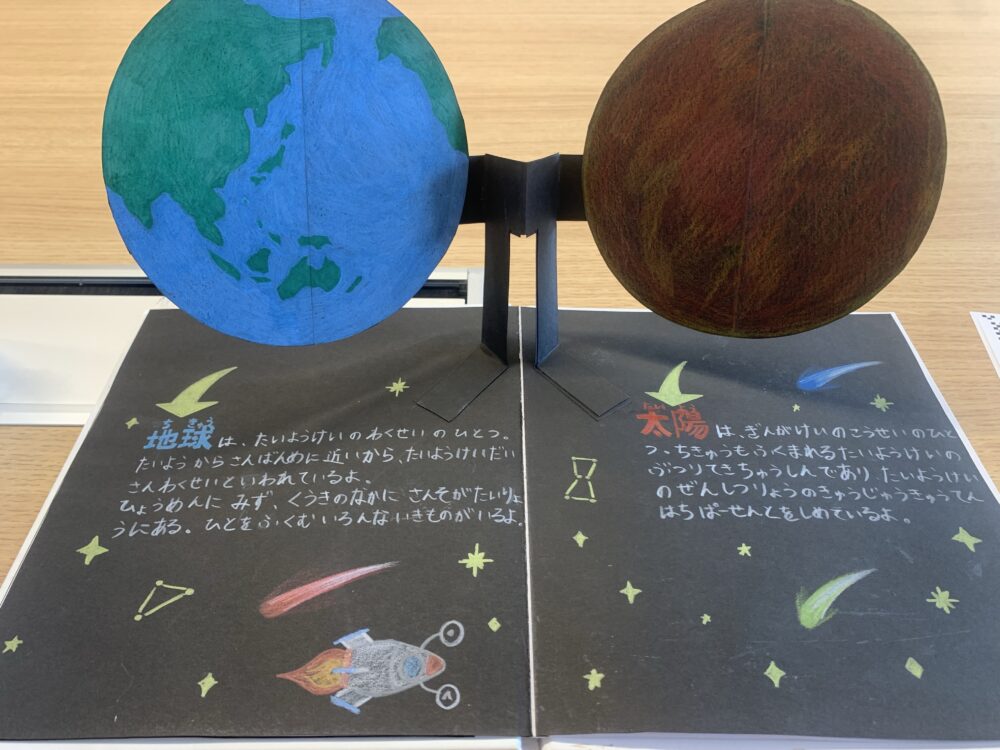 ちきゅう
地球は、たいようけいのわくせいのひとつ。
たいようからさんばんめに近いから、たいようけいだい
さんわくせいといわれているよ。
ひょうめんにみず、くうきのなかにさんそがたいりょ
うにある。ひとをふくむいろんないきものがいるよ。
たいよう
太陽は、ぎんがけいのこうせいのひと
つ。ちきゅうもふくまれるたいようけいの
ぶつりてきちゅうしんであり、たいようけい
のぜんしつりょうのきゅうじゅうきゅうてん
はちぱーせんとをしめているよ。